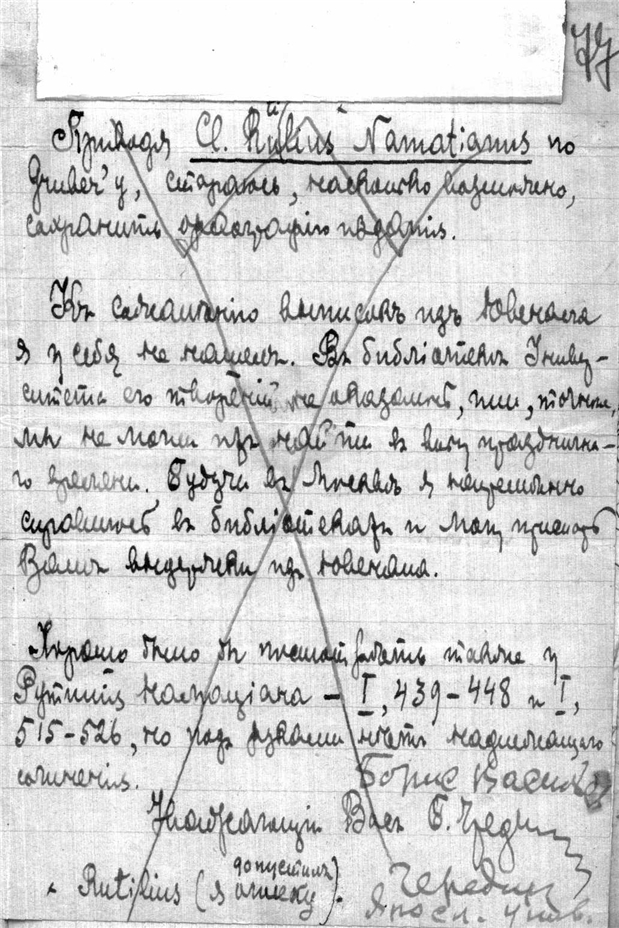 77
Приводя Cl. Rutilius Namatianus по
Gruber'у, стараюсь, насколько возможно,
сохранить орѳографію изданія.
Къ сожалѣнію выписокъ изъ Ювенала
я у себя не нашелъ. Въ библіотекѣ Универ-
ситета его твореній не оказалось, или, точнѣе,
мы не могли ихъ найти въ виду празднична-
го времени. Будучи въ Москвѣ я непремѣнно
справлюсь въ библіотекахъ и могу прислать
Вамъ выдержки изъ Ювенала.
Хорошо было бы посмотрѣть также у
Рутилія Намаціана – I, 439–448 и I,
515–526, но подъ руками нѣтъ надлежащаго
сочиненія.
Борис Васил
Уважающій Васъ Б. Чередин
Rutilius (я допустилъ описку).
Чередин
Яросл. унив.